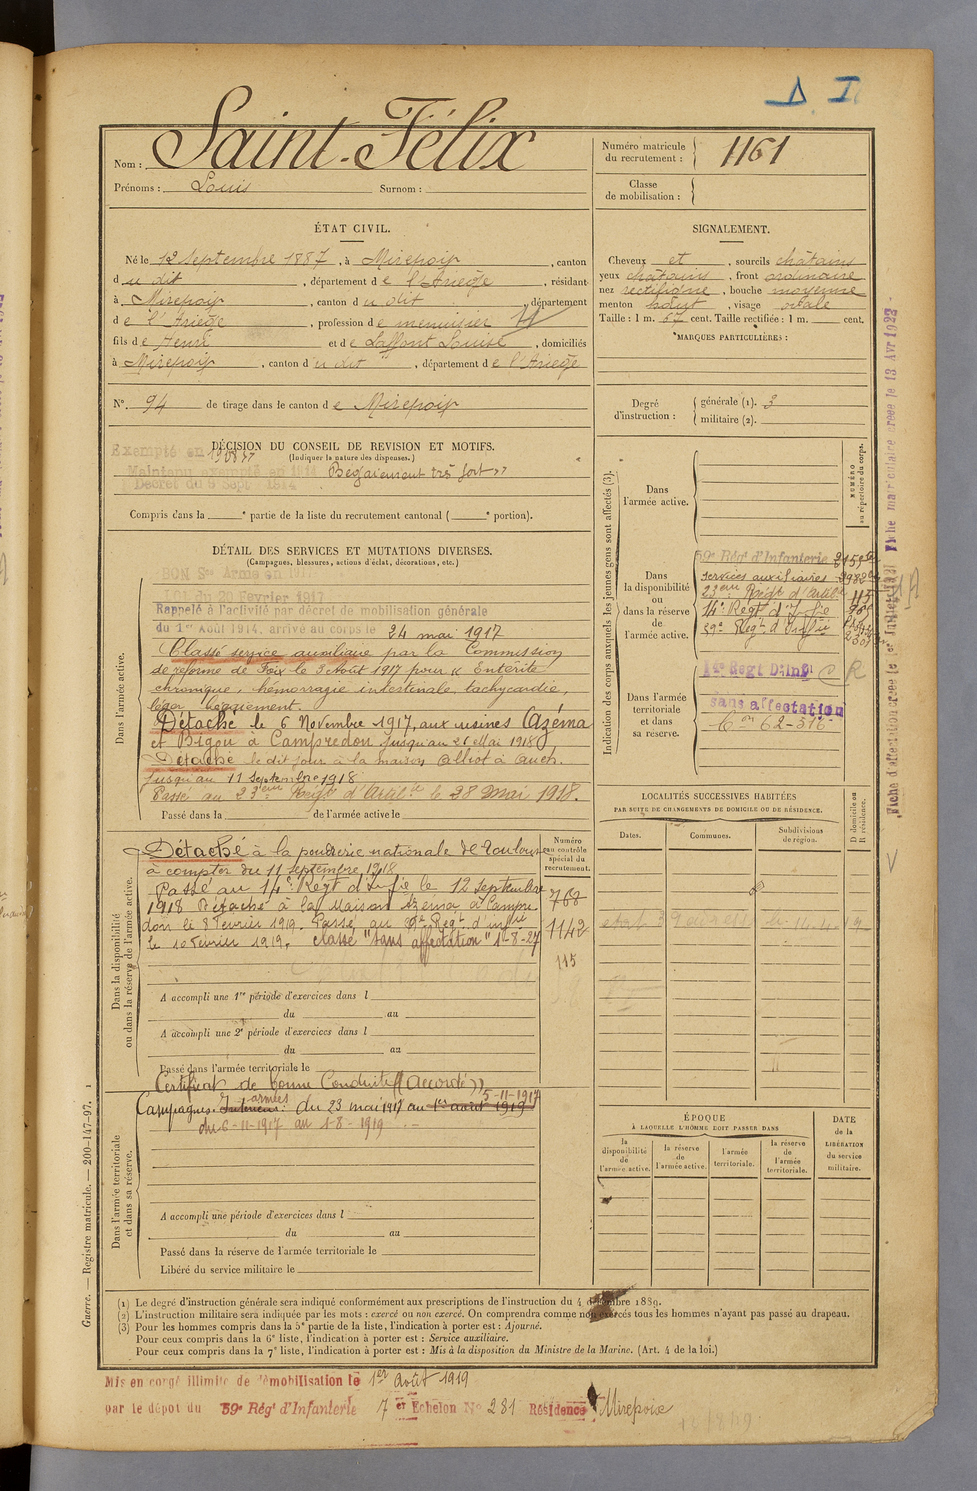 D. I
Nom : Saint-Félix
Prénoms : Louis Surnom :
Numéro matricule du recrutement : 1161
Classe de mobilisation :
ÉTAT CIVIL.
Né le 12 Septembre 1887, à Mirepoix, canton
du dit, département de l'Ariège, résidant
à Mirepoix, canton du dit, département
de l'Ariège, profession de menuisier
fils de Jean et de Laffont Louise, domiciliés
à Mirepoix, canton du dit, département de l'Ariège
N° 94 de tirage dans le canton de Mirepoix
SIGNALEMENT.
Cheveux et, sourcils châtains
yeux châtains, front ordinaire
nez rectiligne, bouche moyenne
menton haut, visage ovale
Taille : 1 m. 57 cent. Taille rectifiée : 1 m. cent.
MARQUES PARTICULIÈRES :
Degré d'instruction : générale (1). 3
militaire (2).
DÉCISION DU CONSEIL DE REVISION ET MOTIFS.
(Indiquer la nature des dispenses.)
Exempté en 1908
Maintenu exempté en 1914
Décret du 9 Sept 1914
Bégaiement très fort »
Compris dans la e partie de la liste du recrutement cantonal ( e portion).
DÉTAIL DES SERVICES ET MUTATIONS DIVERSES.
(Campagnes, blessures, actions d'éclat, décorations, etc.)
BON Sce Armé en 1917
LOI du 20 Février 1917
Rappelé à l'activité par décret de mobilisation générale
du 1er Août 1914, arrivé au corps le 24 mai 1917
Classé service auxiliaire par la Commission
de réforme de Foix le 3 Août 1917 pour « Entérite
chronique, hémorragie intestinale, tachycardie,
léger bégaiement.
Détaché le 6 Novembre 1917, aux usines Azéma
et Bigou à Campredon jusqu'au 21 Mai 1918
Détaché le dit jour à la maison Alliot à Auch.
jusqu'au 11 Septembre 1918
Passé au 23ème Régt d'Artie le 28 Mai 1918.
Passé dans la de l'armée active le
Dans l'armée active.
Détaché à la poudrerie nationale de Toulouse
à compter du 11 septembre 1918
Passé au 14e Régt d'Infie le 12 septembre
1918 Détaché à la Maison Azema à Campre
don le 8 Février 1919. Passé au 59e Regt d'infie
le 10 Février 1919. classé "sans affectation" 1-8-27
Numéro au contrôle spécial du recrutement.
768
1142
115
Dans la disponibilité ou dans la réserve de l'armée active.
A accompli une 1re période d'exercices dans l
du au
A accompli une 2e période d'exercices dans l
du au
Passé dans l'armée territoriale le
Certificat de bonne Conduite « Accordé »
Campagnes : Intérieur armées du 23 mai 1917 au 1er août 1919 5-11-1917
du 6-11-1917 au 1-8-1919
Dans l'armée territoriale et dans sa réserve.
A accompli une période d'exercices dans l
du au
Passé dans la réserve de l'armée territoriale le
Libéré du service militaire le
Indication des corps auxquels les jeunes gens sont affectés (3).
NUMÉRO au répertoire du corps.
Dans l'armée active.
Dans la disponibilité ou dans la réserve de l'armée active.
59e Régt d'Infanterie
services auxiliaires
23ème Régt d'Artie 115
14e Regt d'Infie
59e Regt d'Infie
Dans l'armée territoriale et dans sa réserve.
14e Regt D'Inf C R
sans affectation
Con 62-316
LOCALITÉS SUCCESSIVES HABITÉES
PAR SUITE DE CHANGEMENTS DE DOMICILE OU DE RÉSIDENCE.
Dates. Communes. Subdivisions de région. D domicile ou R résidence.
ÉPOQUE
À LAQUELLE L'HOMME DOIT PASSER DANS
la disponibilité de l'armée active.
la réserve de l'armée active.
l'armée territoriale.
la réserve de l'armée territoriale.
DATE de la LIBÉRATION du service militaire.
(1) Le degré d'instruction générale sera indiqué conformément aux prescriptions de l'instruction du 4 décembre 1889.
(2) L'instruction militaire sera indiquée par les mots : exercé ou non exercé. On comprendra comme non exercés tous les hommes n'ayant pas passé au drapeau.
(3) Pour les hommes compris dans la 5e partie de la liste, l'indication à porter est : Ajourné.
Pour ceux compris dans la 6e liste, l'indication à porter est : Service auxiliaire.
Pour ceux compris dans la 7e liste, l'indication à porter est : Mis à la disposition du Ministre de la Marine. (Art. 4 de la loi.)
Mis en congé illimité de démobilisation le 1er Août 1919
par le dépot du 59e Régt d'Infanterie 7er Echelon No 281 Résidence Mirepoix
Guerre. — Registre matricule. — 200-147-97.
Fiche matriculaire créée le 13 Avr 1923
Fiche d'affectation créée le 1er Juillet 1921